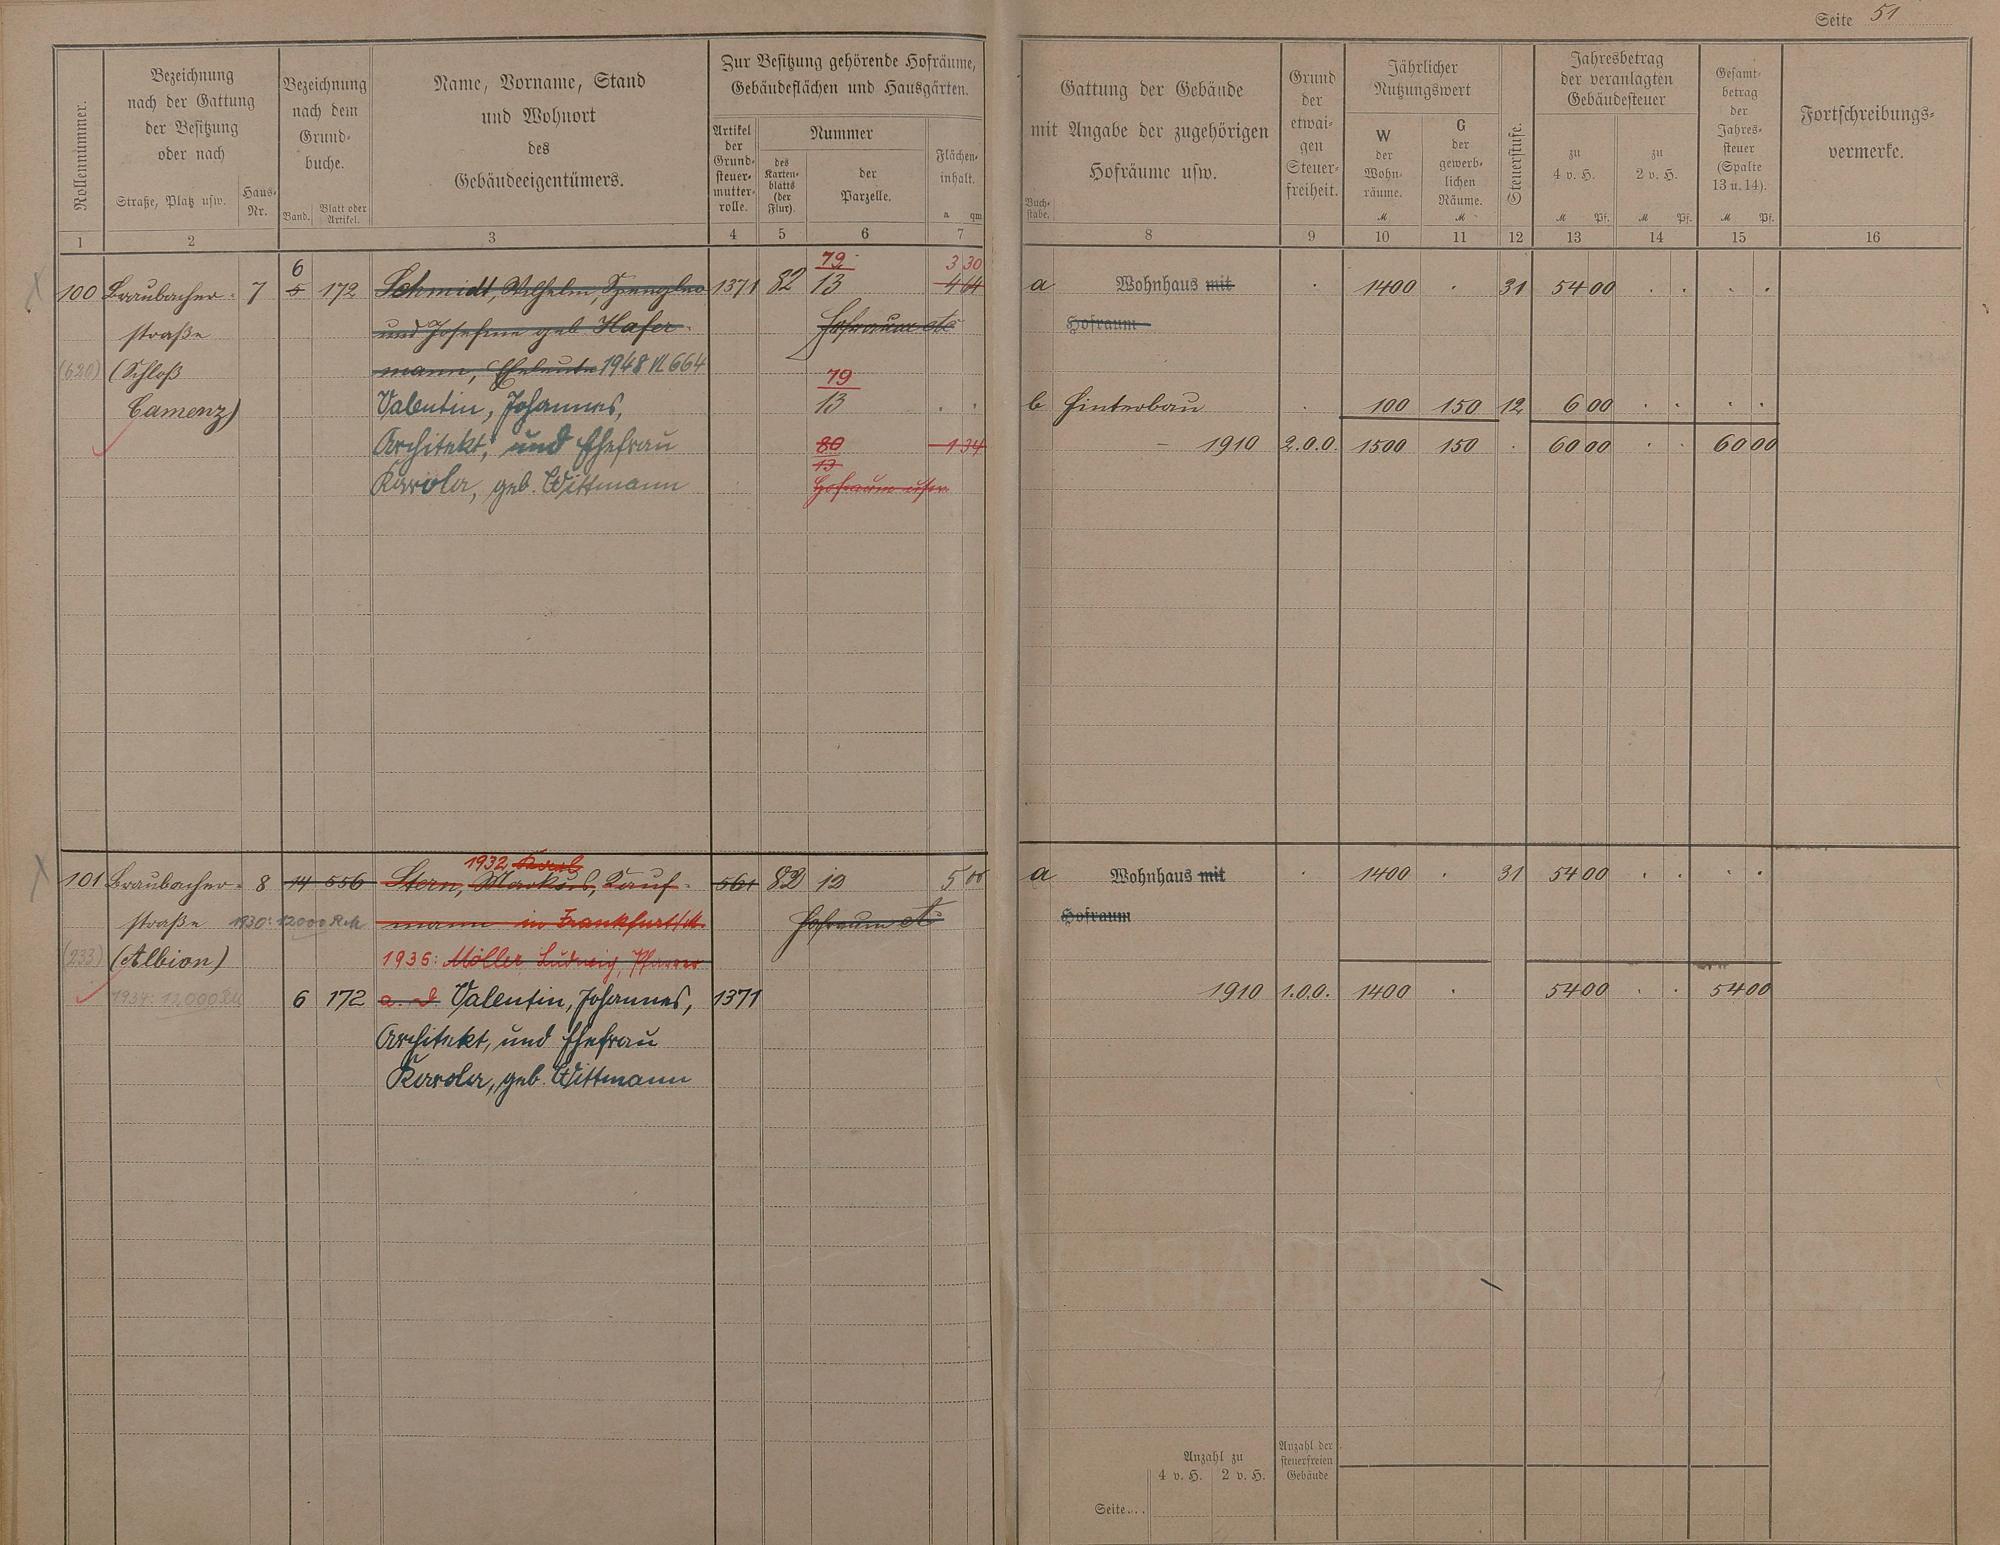 Seite 51
Rollennummer.
Bezeichnung
nach der Gattung
der Besitzung
oder nach
Straße, Platz usw.
Haus-
Nr.
Bezeichnung
nach dem
Grund-
buche.
Band.
Blatt oder
Artikel.
Name, Vorname, Stand
und Wohnort
des
Gebäudeeigentümers.
Zur Besitzung gehörende Hofräume,
Gebäudeflächen und Hausgärten.
Artikel
der
Grund-
steuer-
mutter-
rolle.
Nummer
des
Karten-
blatts
(der
Flur).
der
Parzelle.
Flächen-
inhalt.
a qm
Buch-
stabe.
Gattung der Gebäude
mit Angabe der zugehörigen
Hofräume usw.
Grund
der
etwai-
gen
Steuer-
freiheit.
Jährlicher
Nutzungswert
W
der
Wohn-
räume.
M
G
der
gewerb-
lichen
Räume.
M
Steuerstufe.
Jahresbetrag
der veranlagten
Gebäudesteuer
zu
4 v. H.
M Pf.
zu
2 v. H.
M Pf.
Gesamt-
betrag
der
Jahres-
steuer
(Spalte
13 u. 14).
M Pf.
Fortschreibungs-
vermerke.
1 2 3 4 5 6 7 8 9 10 11 12 13 14 15 16
6 79 3 30
100 Braubacher- 7 5 172 Schmidt, Wilhelm, Spengler 1371 82 13 4 64 a Wohnhaus mit 1400 31 54 00
straße und Josefine geb. Hafer- Hofraum etc Hofraum
(620) (Schloß mann, Eheleute 1948 VI 664
79
Camenz) Valentin, Johannes, 13 b Hinterbau 100 150 12 6 00
Architekt, und Ehefrau 80 1 34 1910 2.0.0. 1500 150 60 00 60 00
13
Karola, geb. Wittmann Hofraum usw.
1932 Karl
101 Braubacher- 8 14 556 Stern, Markus, Kauf- 561 82 12 5 00 a Wohnhaus mit 1400 31 54 00
straße 1930: 12000 R.M. mann in Frankfurt/M. Hofraum etc Hofraum
(233) (Albion) 1936: Möller, Ludwig, Pfarrer
1934: 12.000 RM 6 172 a. D. Valentin, Johannes, 1371 1910 1.0.0. 1400 54 00 54 00
Architekt, und Ehefrau
Karola, geb. Wittmann
Anzahl zu
4 v. H. 2 v. H.
Anzahl der
steuerfreien
Gebäude
Seite....